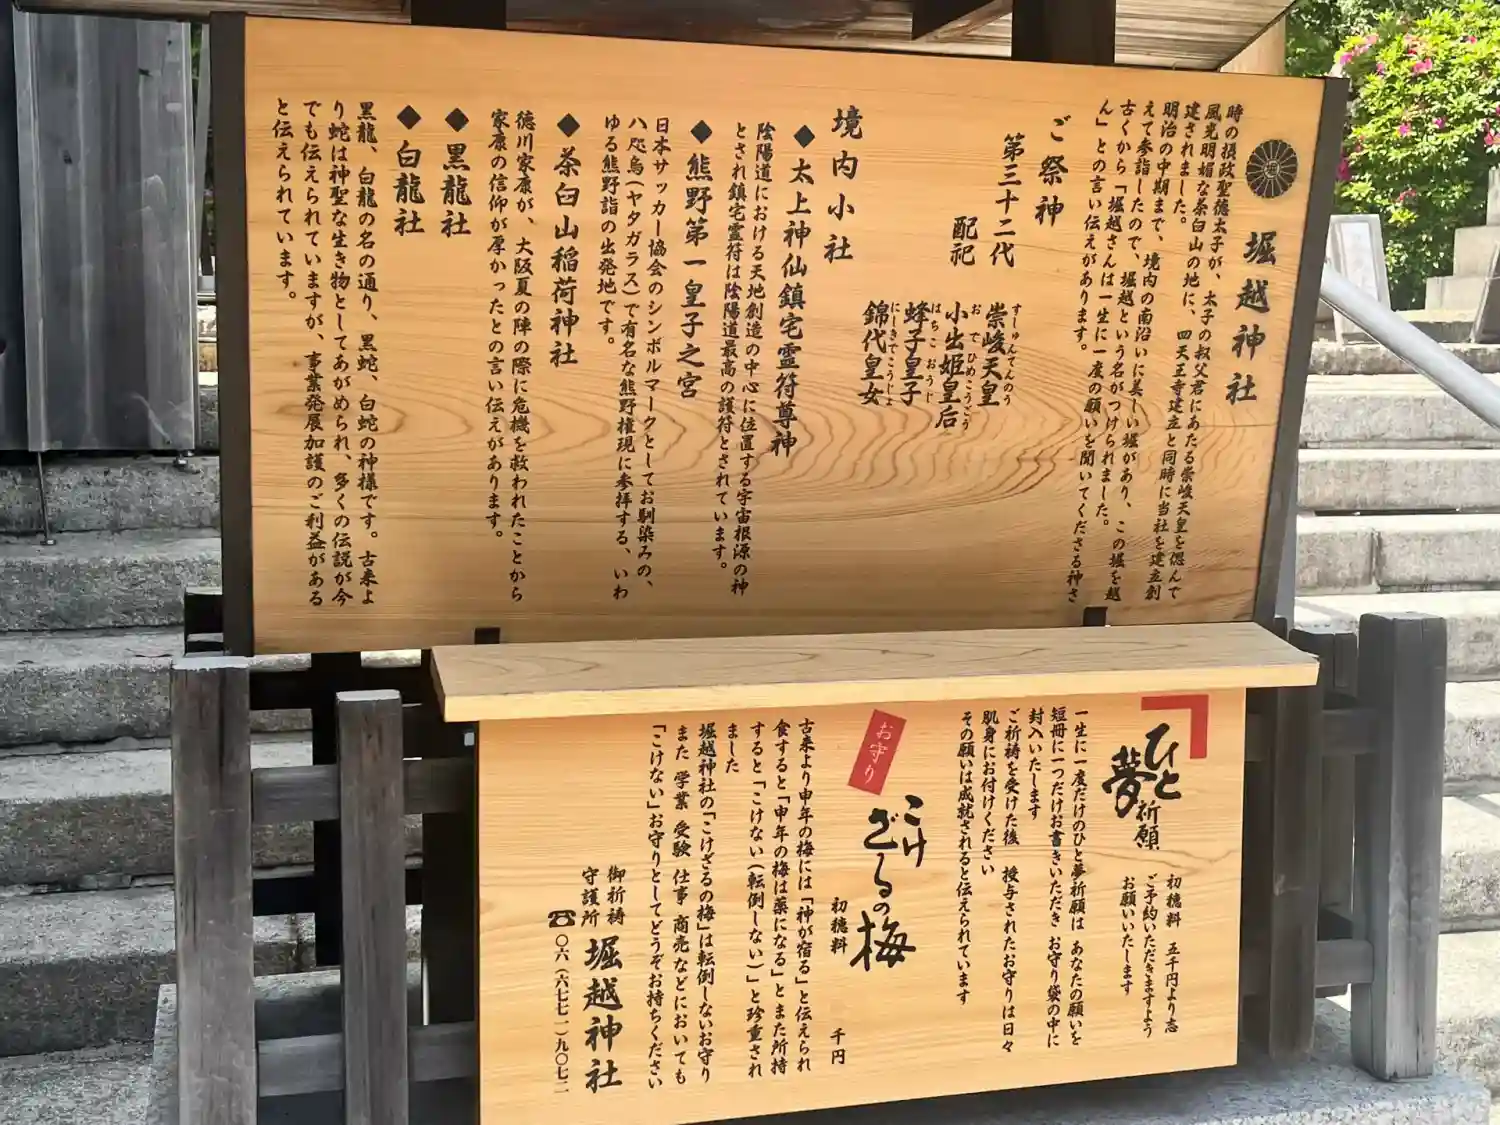 堀越神社
時の摂政聖徳太子が、太子の叔父君にあたる崇峻天皇を偲んで
風光明媚な茶臼山の地に、四天王寺建立と同時に当社を建立創
建されました。
明治の中期まで、境内の南沿いに美しい堀があり、この堀を越
えて参詣したので、堀越という名がつけられました。
古くから「堀越さんは一生に一度の願いを聞いてくださる神さ
ん」との言い伝えがあります。
ご祭神
第三十二代 崇峻天皇
すしゅんてんのう
配祀 小出姫皇后
おでひめこうごう
蜂子皇子
はちこおうじ
錦代皇女
にしきでこうじょ
境内小社
◆太上神仙鎮宅霊符尊神
陰陽道における天地創造の中心に位置する宇宙根源の神
とされ鎮宅霊符は陰陽道最高の護符とされています。
◆熊野第一皇子之宮
日本サッカー協会のシンボルマークとしてお馴染みの、
八咫烏(ヤタガラス)で有名な熊野権現に参拝する、いわ
ゆる熊野詣の出発地です。
◆茶臼山稲荷神社
徳川家康が、大阪夏の陣の際に危機を救われたことから
家康の信仰が厚かったとの言い伝えがあります。
◆黒龍社
◆白龍社
黒龍、白龍の名の通り、黒蛇、白蛇の神様です。古来よ
り蛇は神聖な生き物としてあがめられ、多くの伝説が今
でも伝えられていますが、事業発展加護のご利益がある
と伝えられています。
ひと夢祈願
初穂料 五千円より志
ご予約いただきますよう
お願いいたします
一生に一度だけのひと夢祈願は あなたの願いを
短冊に一つだけお書きいただき お守り袋の中に
封入いたします
ご祈祷を受けた後 授与されたお守りは日々
肌身にお付けください
その願いは成就されると伝えられています
お守り
こけざるの梅
初穂料 千円
古来より申年の梅には「神が宿る」と伝えられ
食すると「申年の梅は薬になる」とまた所持
すると「こけない(転倒しない)」と珍重され
ました
堀越神社の「こけざるの梅」は転倒しないお守り
また 学業 受験 仕事 商売などにおいても
「こけない」お守りとしてどうぞお持ちください
御祈祷
守護所
堀越神社
☎〇六(六七七一)九〇七二